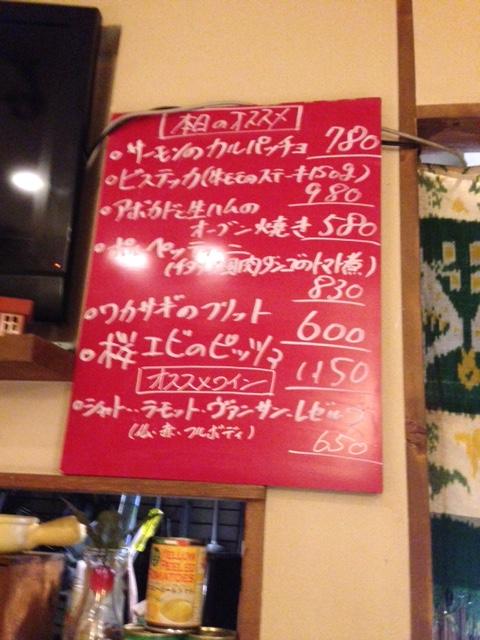 本日のオススメ
・サーモンのカルパッチョ 780
・ビステッカ(牛モモのステーキ150g)
980
・アボカドと生ハムの
オーブン焼き 580
・ポルペッティーニ
肉ダンゴのトマト煮)
830
・ワカサギのフリット 600
・桜エビのピッツァ 1150
オススメワイン
・シャトー・ラモット・ヴァンサン・レゼルブ
(仏・赤・フルボディ) 650
YELLOW
PEELED
TOMATOES